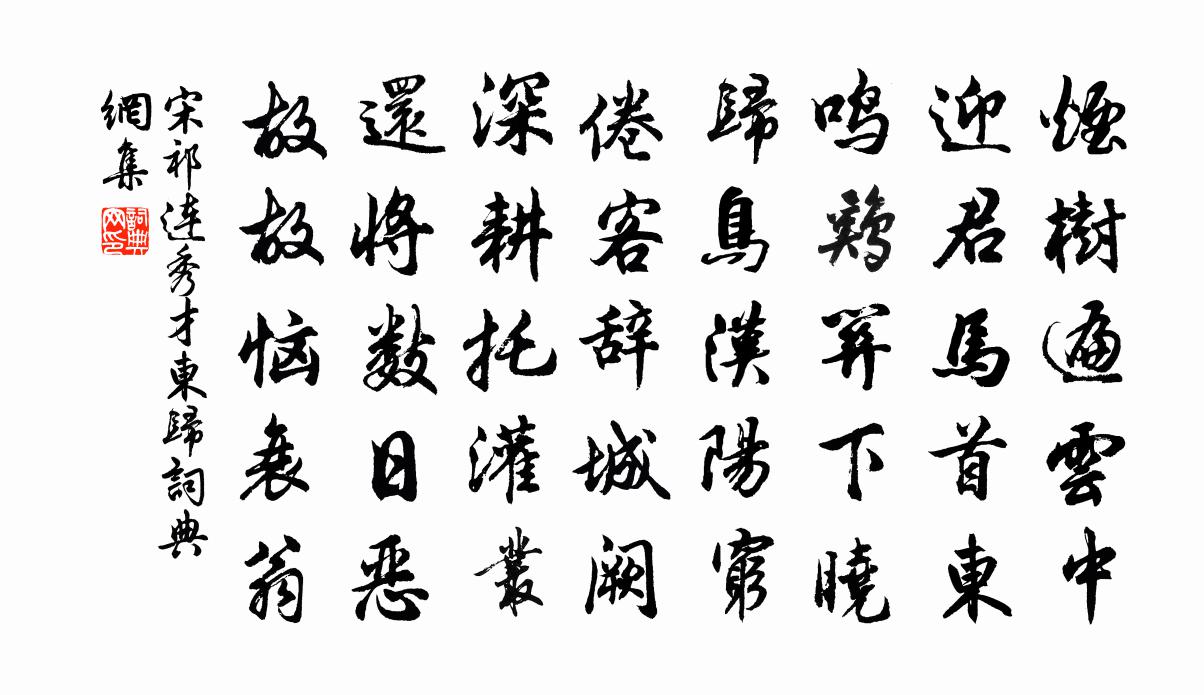 煙樹遍雲中
迎君馬首東
鸣鷄関下曉
歸鳥漢陽窮
倦客辞城阙
深耕托灌叢
還將数日恶
故故恼衰翁
宋祁连秀才東歸詞典
網集
詞典
网印